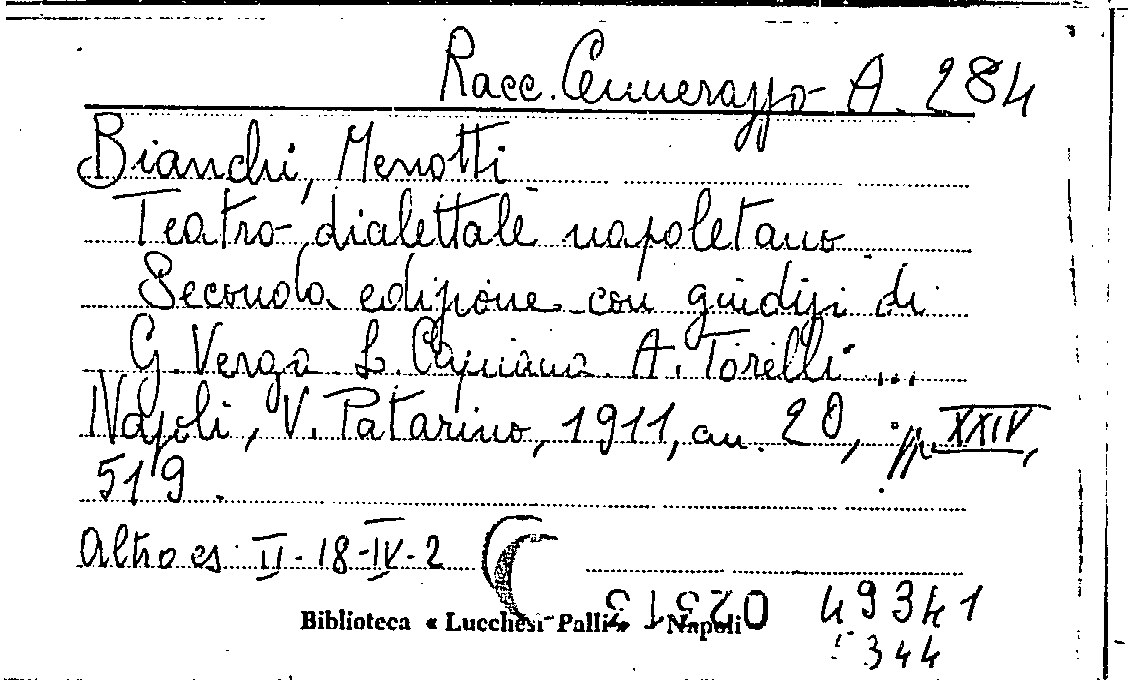 Racc. Cennerazzo A. 284
Bianchi, Menotti
Teatro dialettale napoletano
Seconda edizione con giudizi di
G. Verga L. Capuana A. Torelli ...
Napoli, V. Patarino, 1911, cm. 20, pp. XXIV,
519.
Altro es. II-18-IV-2
Biblioteca « Lucchesi-Palli » Napoli
49341
344